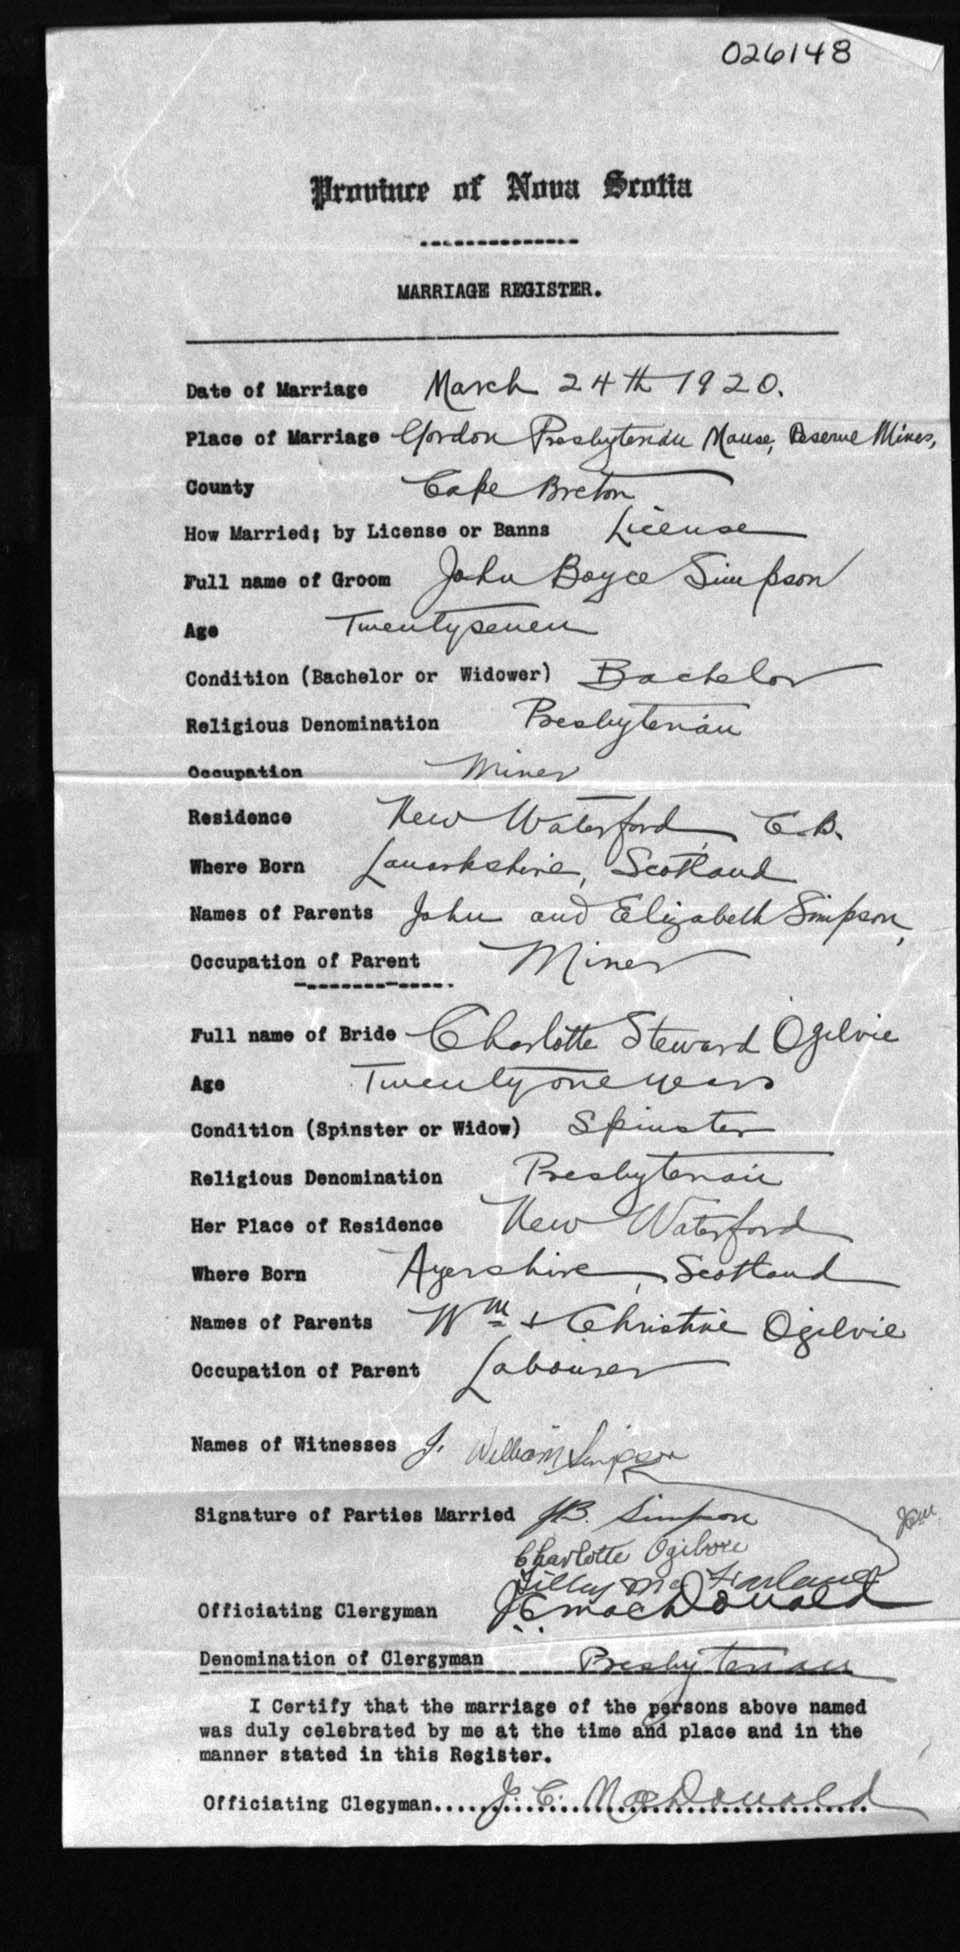 026148
Province of Nova Scotia
MARRIAGE REGISTER.
Date of Marriage March 24th 1920.
Place of Marriage Gordon Presbyterian Manse, Reserve Mines,
County Cape Breton
How Married; by License or Banns License
Full name of Groom John Boyce Simpson
Age Twentyseven
Condition (Bachelor or Widower) Bachelor
Religious Denomination Presbyterian
Occupation Miner
Residence New Waterford, C.B.
Where Born Lanarkshire, Scotland
Names of Parents John and Elizabeth Simpson,
Occupation of Parent Miner
Full name of Bride Charlotte Steward Ogilvie
Age Twentyone years
Condition (Spinster or Widow) Spinster
Religious Denomination Presbyterian
Her Place of Residence New Waterford
Where Born Ayershire, Scotland
Names of Parents Wm & Christine Ogilvie
Occupation of Parent Labourer
Names of Witnesses J. William Simpson
Signature of Parties Married J.B. Simpson
Charlotte Ogilvie
Tilley McFarlane
Officiating Clergyman J.C. MacDonald
Denomination of Clergyman Presbyterian
I Certify that the marriage of the persons above named
was duly celebrated by me at the time and place and in the
manner stated in this Register.
Officiating Clegyman..... J. C. MacDonald